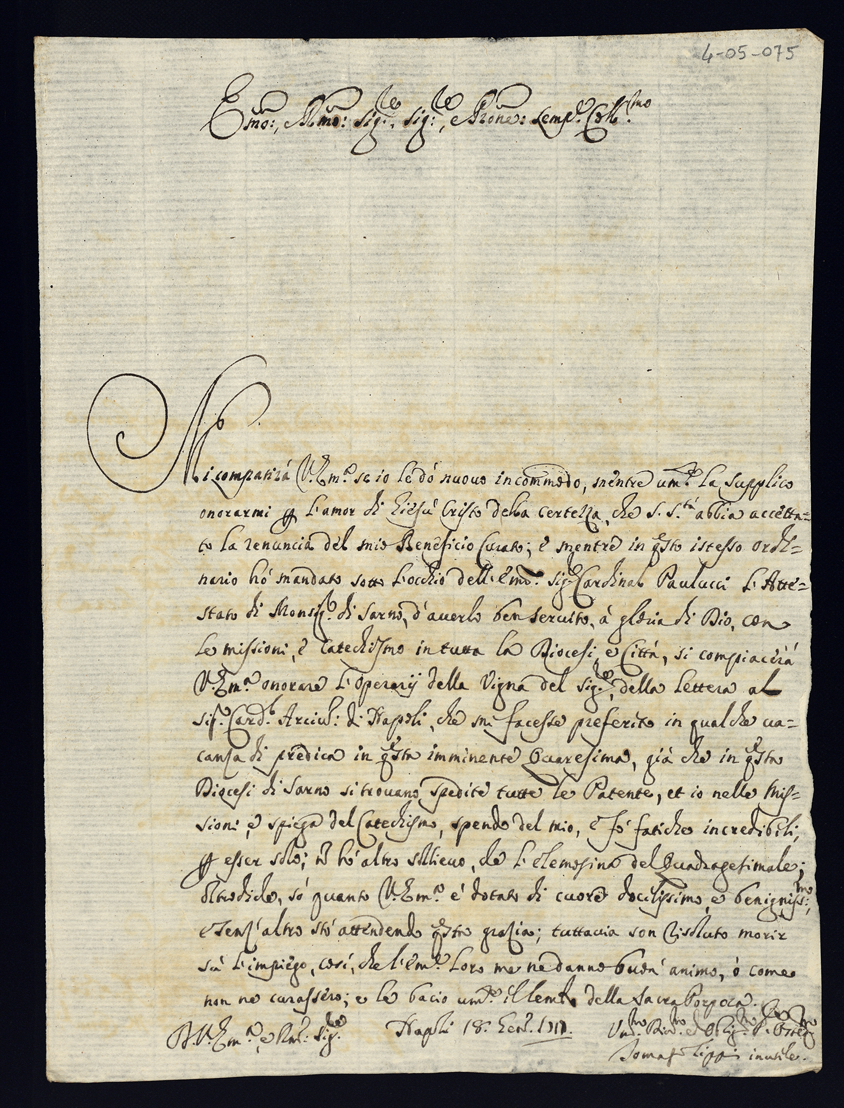 4-05-075
Emo:, e Rmo: Sig.re, Sig.re, e Prone: Semp.e Col.mo
Mi compatirà V. Em.a se io le dò nuovo incommodo, mentre um.e la supplico
onorarmi p l'amor di Giesù Cristo della certezza, che S. S.tà abbia accetta=
to la renuncia del mio Beneficio Curato; e mentre in q.sto istesso ordi=
nario hò mandato sotto l'occhio dell'Emo. Sig.r Cardinal Paulucci l'Atte=
stato di Monsig.r di Sarno, d'averlo ben servito, à gloria di Dio, con
le missioni, e catechismo in tutta la Diocesi, e Città, si compiacerà
V. Em.a onorare l'Operarij della Vigna del Sig.re, della lettera al
Sig.r Card.l Arciv.: di Napoli, che mi facesse preferito in qualche va=
canza di predica in q.sta imminente Quaresima, già che in q.sta
Diocesi di Sarno si trovano spedite tutte le Patente, et io nelle Mis=
sioni, e spiega del Catechismo, spendo del mio, e fò fatiche incredibili,
p esser solo; nè hò altro sollievo, che l'elemosina del Quadragesimale;
Oltrediche, sò quanto V. Em.a è dotato di cuore docilissimo, e benigniss.mo;
e senz'altro stò attendendo q.sta grazia; tuttavia son risoluto morir
sù l'impiego, così, che l'Em.e Loro me ne danno buon'animo, ò come
non ne curassero; e le bacio um.te il lembo della Sacra Porpora.
D. V. Em.a, e Rma: Sig.re Napoli 18: Gen.o
inutile.